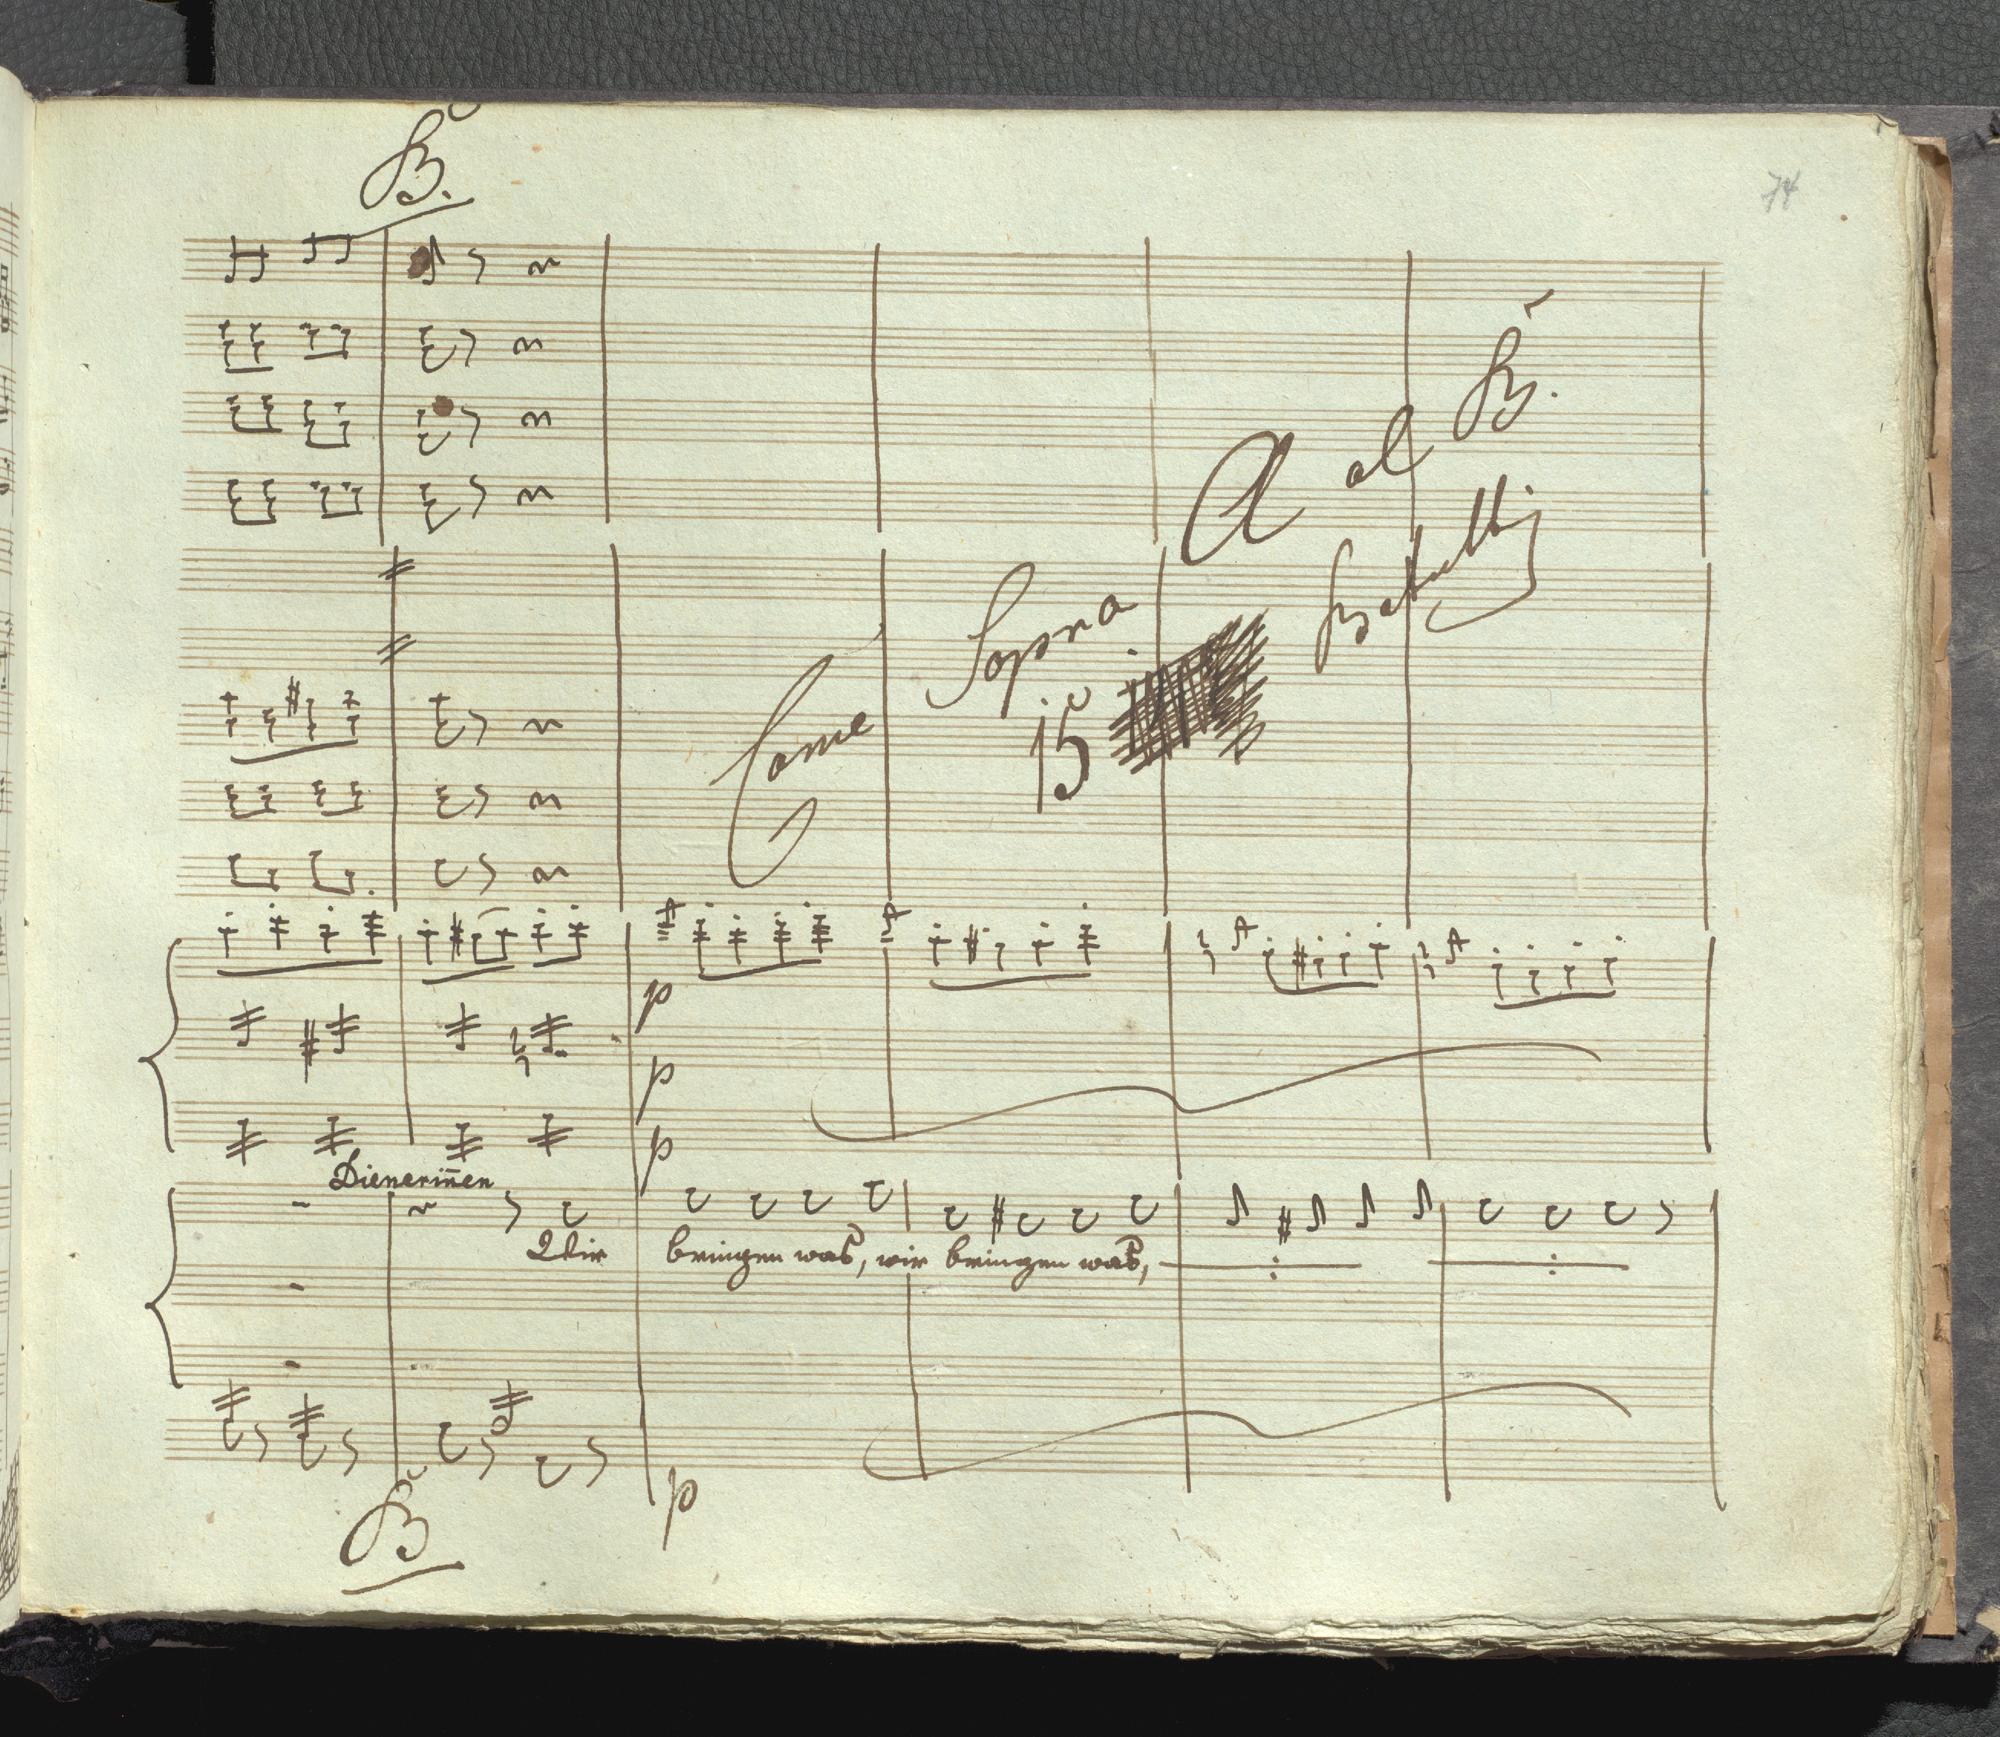 B.
74
A al B.
Come Sopra
15 Battutti
p
p
p
Dienerin̄en
Wir bringen was, wir bringen was,
p
B